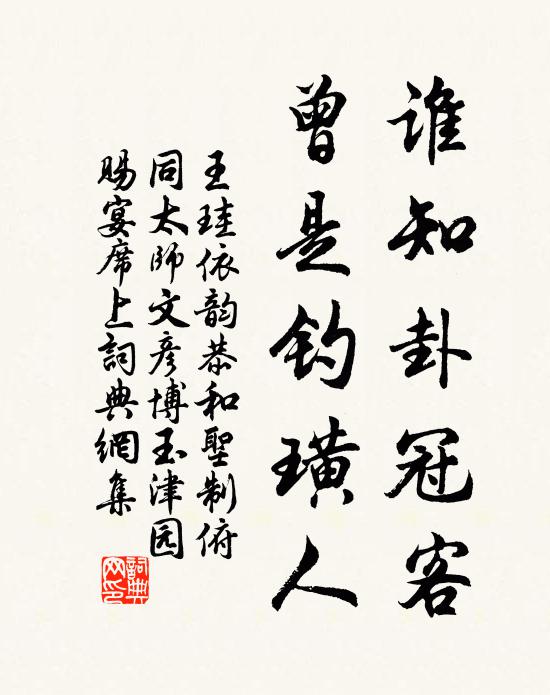 谁知卦冠客
曾是钓璜人
王珪依韵恭和聖制俯
同太師文彦博玉津园
賜宴席上詞典網集
詞典
网印